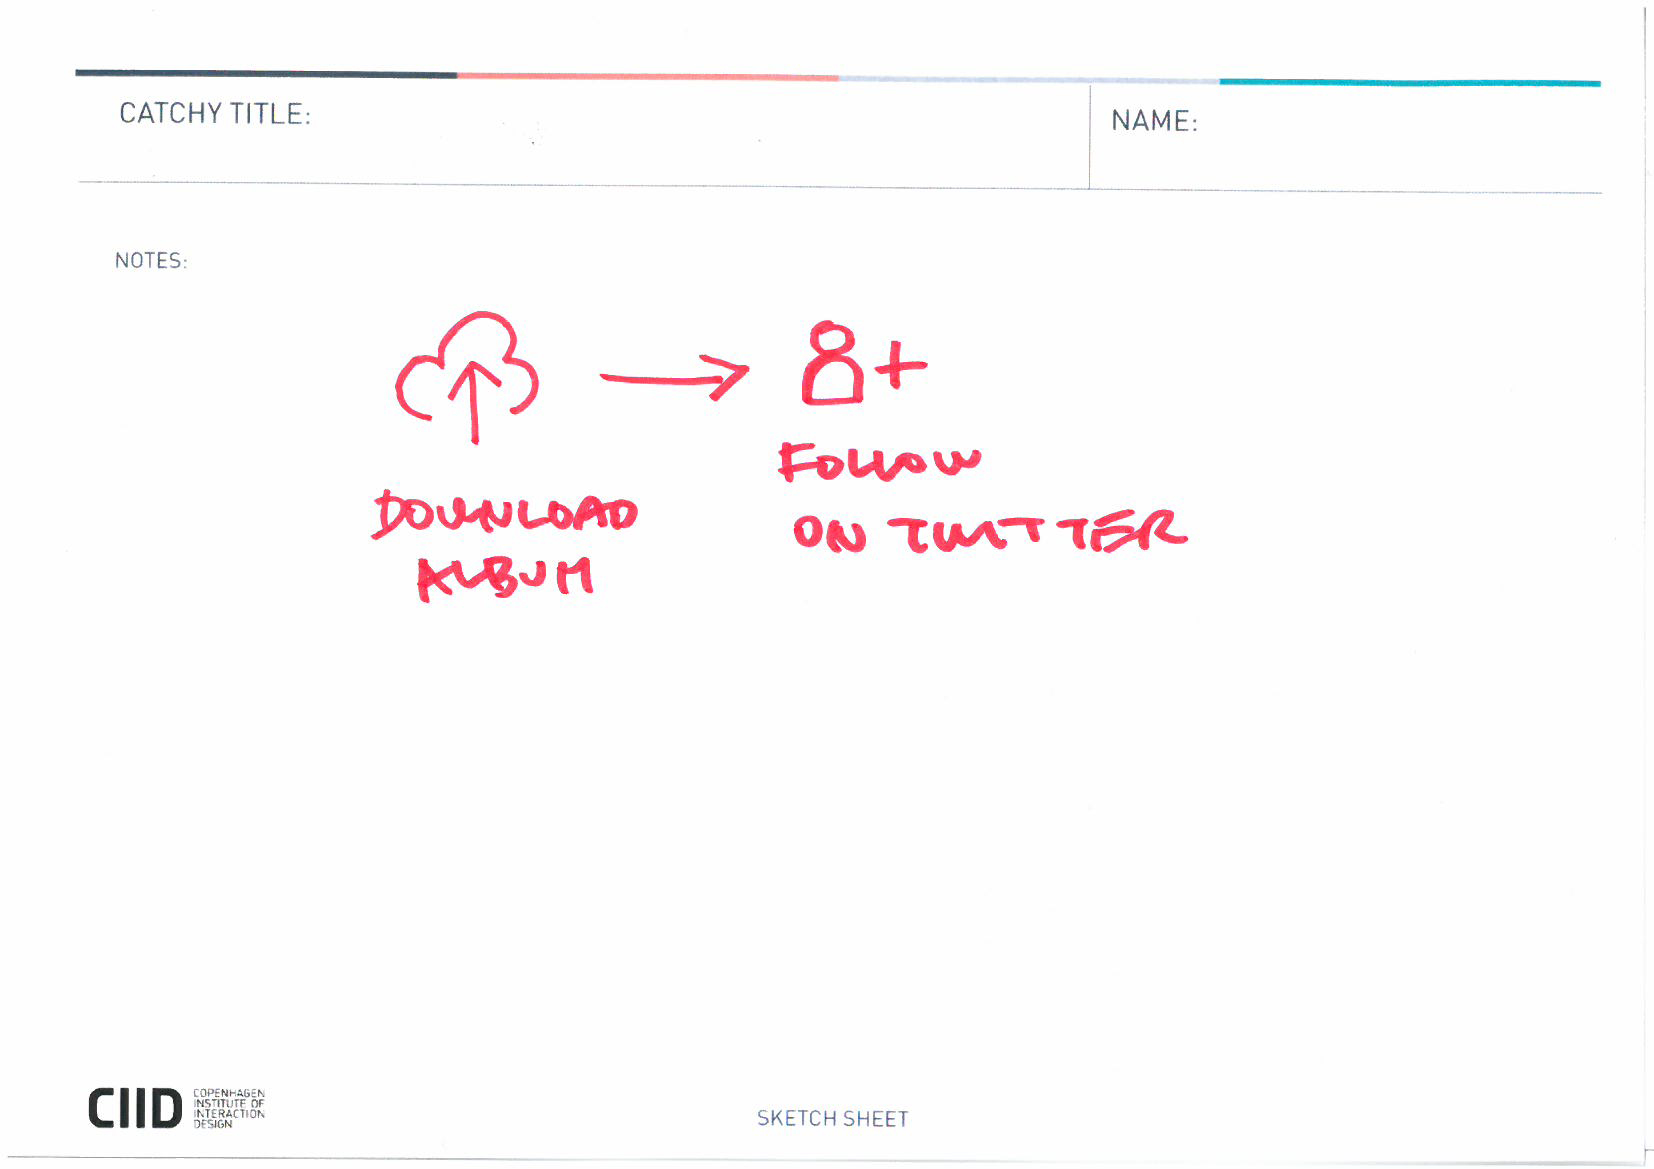 CATCHY TITLE:
NAME:
NOTES:
DOWNLOAD
ALBUM
FOLLOW
ON TWITTER
CIID
COPENHAGEN
INSTITUTE OF
INTERACTION
DESIGN
SKETCH SHEET